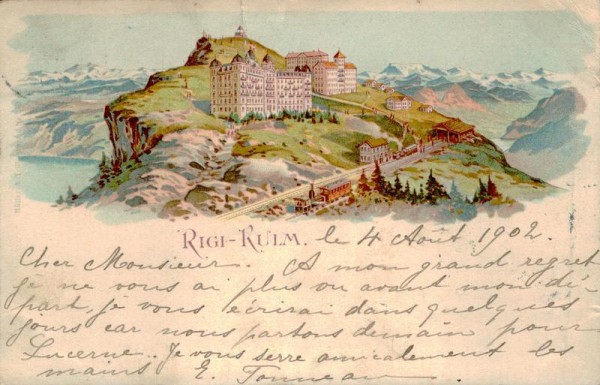 RIGI-KULM. le 4 Août 1902.
Cher Monsieur. A mon grand regret
je ne vous ai plus vu avant mon dé-
part, je vous écrirai dans quelques
jours car nous partons demain pour
Lucerne. Je vous serre amicalement les
mains E. Tonneau